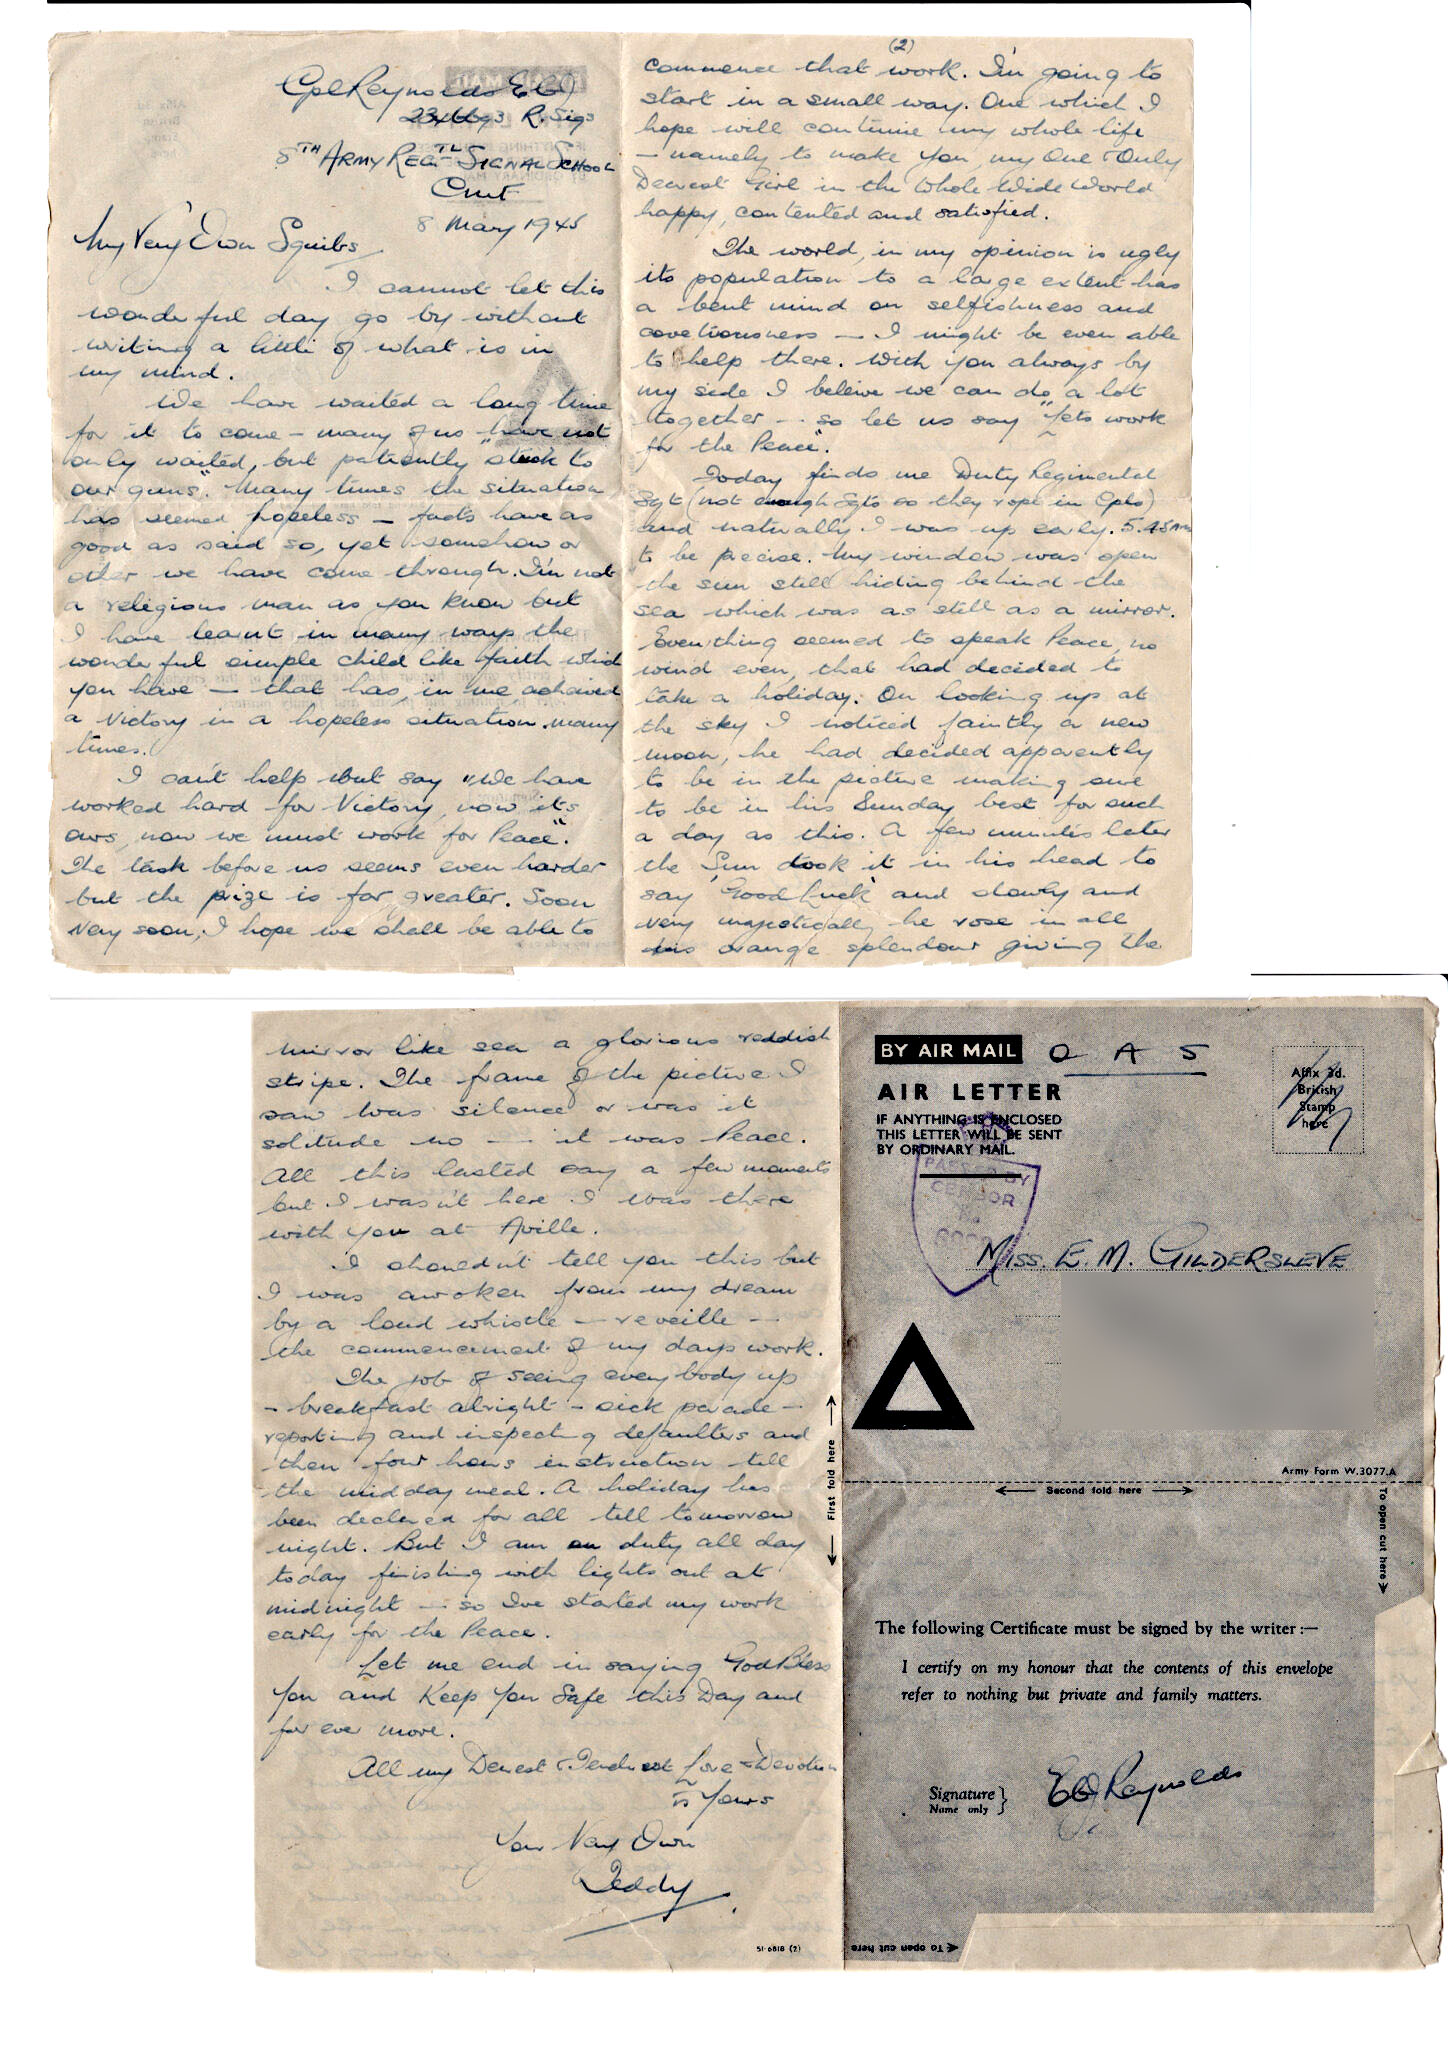 Cpl Reynolds E W
R. Sigs
8TH ARMY REGTL SIGNAL SCHOOL
CMF
8 May 1945
My Very Own Squibs
I cannot let this
wonderful day go by without
writing a little of what is in
my mind.
We have waited a long time
for it to come – many of us "have not
only waited, but patiently stuck to
our guns". Many times the situation
has seemed hopeless – facts have as
good as said so, yet somehow or
other we have come through. I'm not
a religious man as you know but
I have learnt in many ways the
wonderful simple child like faith which
you have – that has, in me achieved
a Victory in a hopeless situation many
times.
I can't help but say "We have
worked hard for Victory, now its
ours, now we must work for Peace".
The task before us seems even harder
but the prize is far greater. Soon
very soon, I hope we shall be able to
(2)
commence that work. I'm going to
start in a small way. One which I
hope will continue my whole life
– namely to make you, my One & Only
Dearest Girl in the Whole Wide World
happy, contented and satisfied.
The world, in my opinion is ugly
its population to a large extent has
a bent mind on selfishness and
covetiousness – I might be even able
to help there. With you always by
my side I beleive we can do a lot
together – so let us say "Lets work
for the Peace".
Today finds me Duty Regimental
Sgt (not enough Sgts so they rope in Cpls)
and naturally I was up early. 5.45AM
to be precise. My window was open
the sun still hiding behind the
sea which was as still as a mirror.
Everything seemed to speak Peace, no
wind even, that had decided to
take a holiday. On looking up at
the sky I noticed faintly a new
moon, he had decided apparently
to be in the picture making sure
to be in his Sunday best for such
a day as this. A few minutes later
the Sun took it in his head to
say 'Good Luck' and slowly and
very majestically he rose in all
his orange splendour giving the
mirror like sea a glorious reddish
stripe. The frame of the picture I
saw was silence or was it
solitude no – it was Peace.
All this lasted say a few moments
but I wasn't here I was there
with you at Aville.
I shouldn't tell you this but
I was awoken from my dream
by a loud whistle – reveille –
the commencement of my days work.
The job of seeing everybody up
– breakfast alright – sick parade –
reporting and inspecting defaulters and
then four hours instruction till
the midday meal. A holiday has
been declared for all till tomorrow
night. But I am on duty all day
today finishing with lights out at
midnight – so I've started my work
early for the Peace.
Let me end in saying God Bless
You and Keep You Safe this Day and
for ever more.
All my Dearest & Tenderest Love & Devotion
is Yours
Your Very Own
Teddy
51-6818 (2)
BY AIR MAIL O A S
AIR LETTER
IF ANYTHING IS ENCLOSED
THIS LETTER WILL BE SENT
BY ORDINARY MAIL.
Affix 3d.
British
Stamp
here
PASSED BY
CENSOR
MISS. E. M. GILDERSLEVE
Army Form W.3077.A
First fold here
Second fold here
To open cut here
The following Certificate must be signed by the writer :—
I certify on my honour that the contents of this envelope
refer to nothing but private and family matters.
Signature
Name only
E W Reynolds
To open cut here